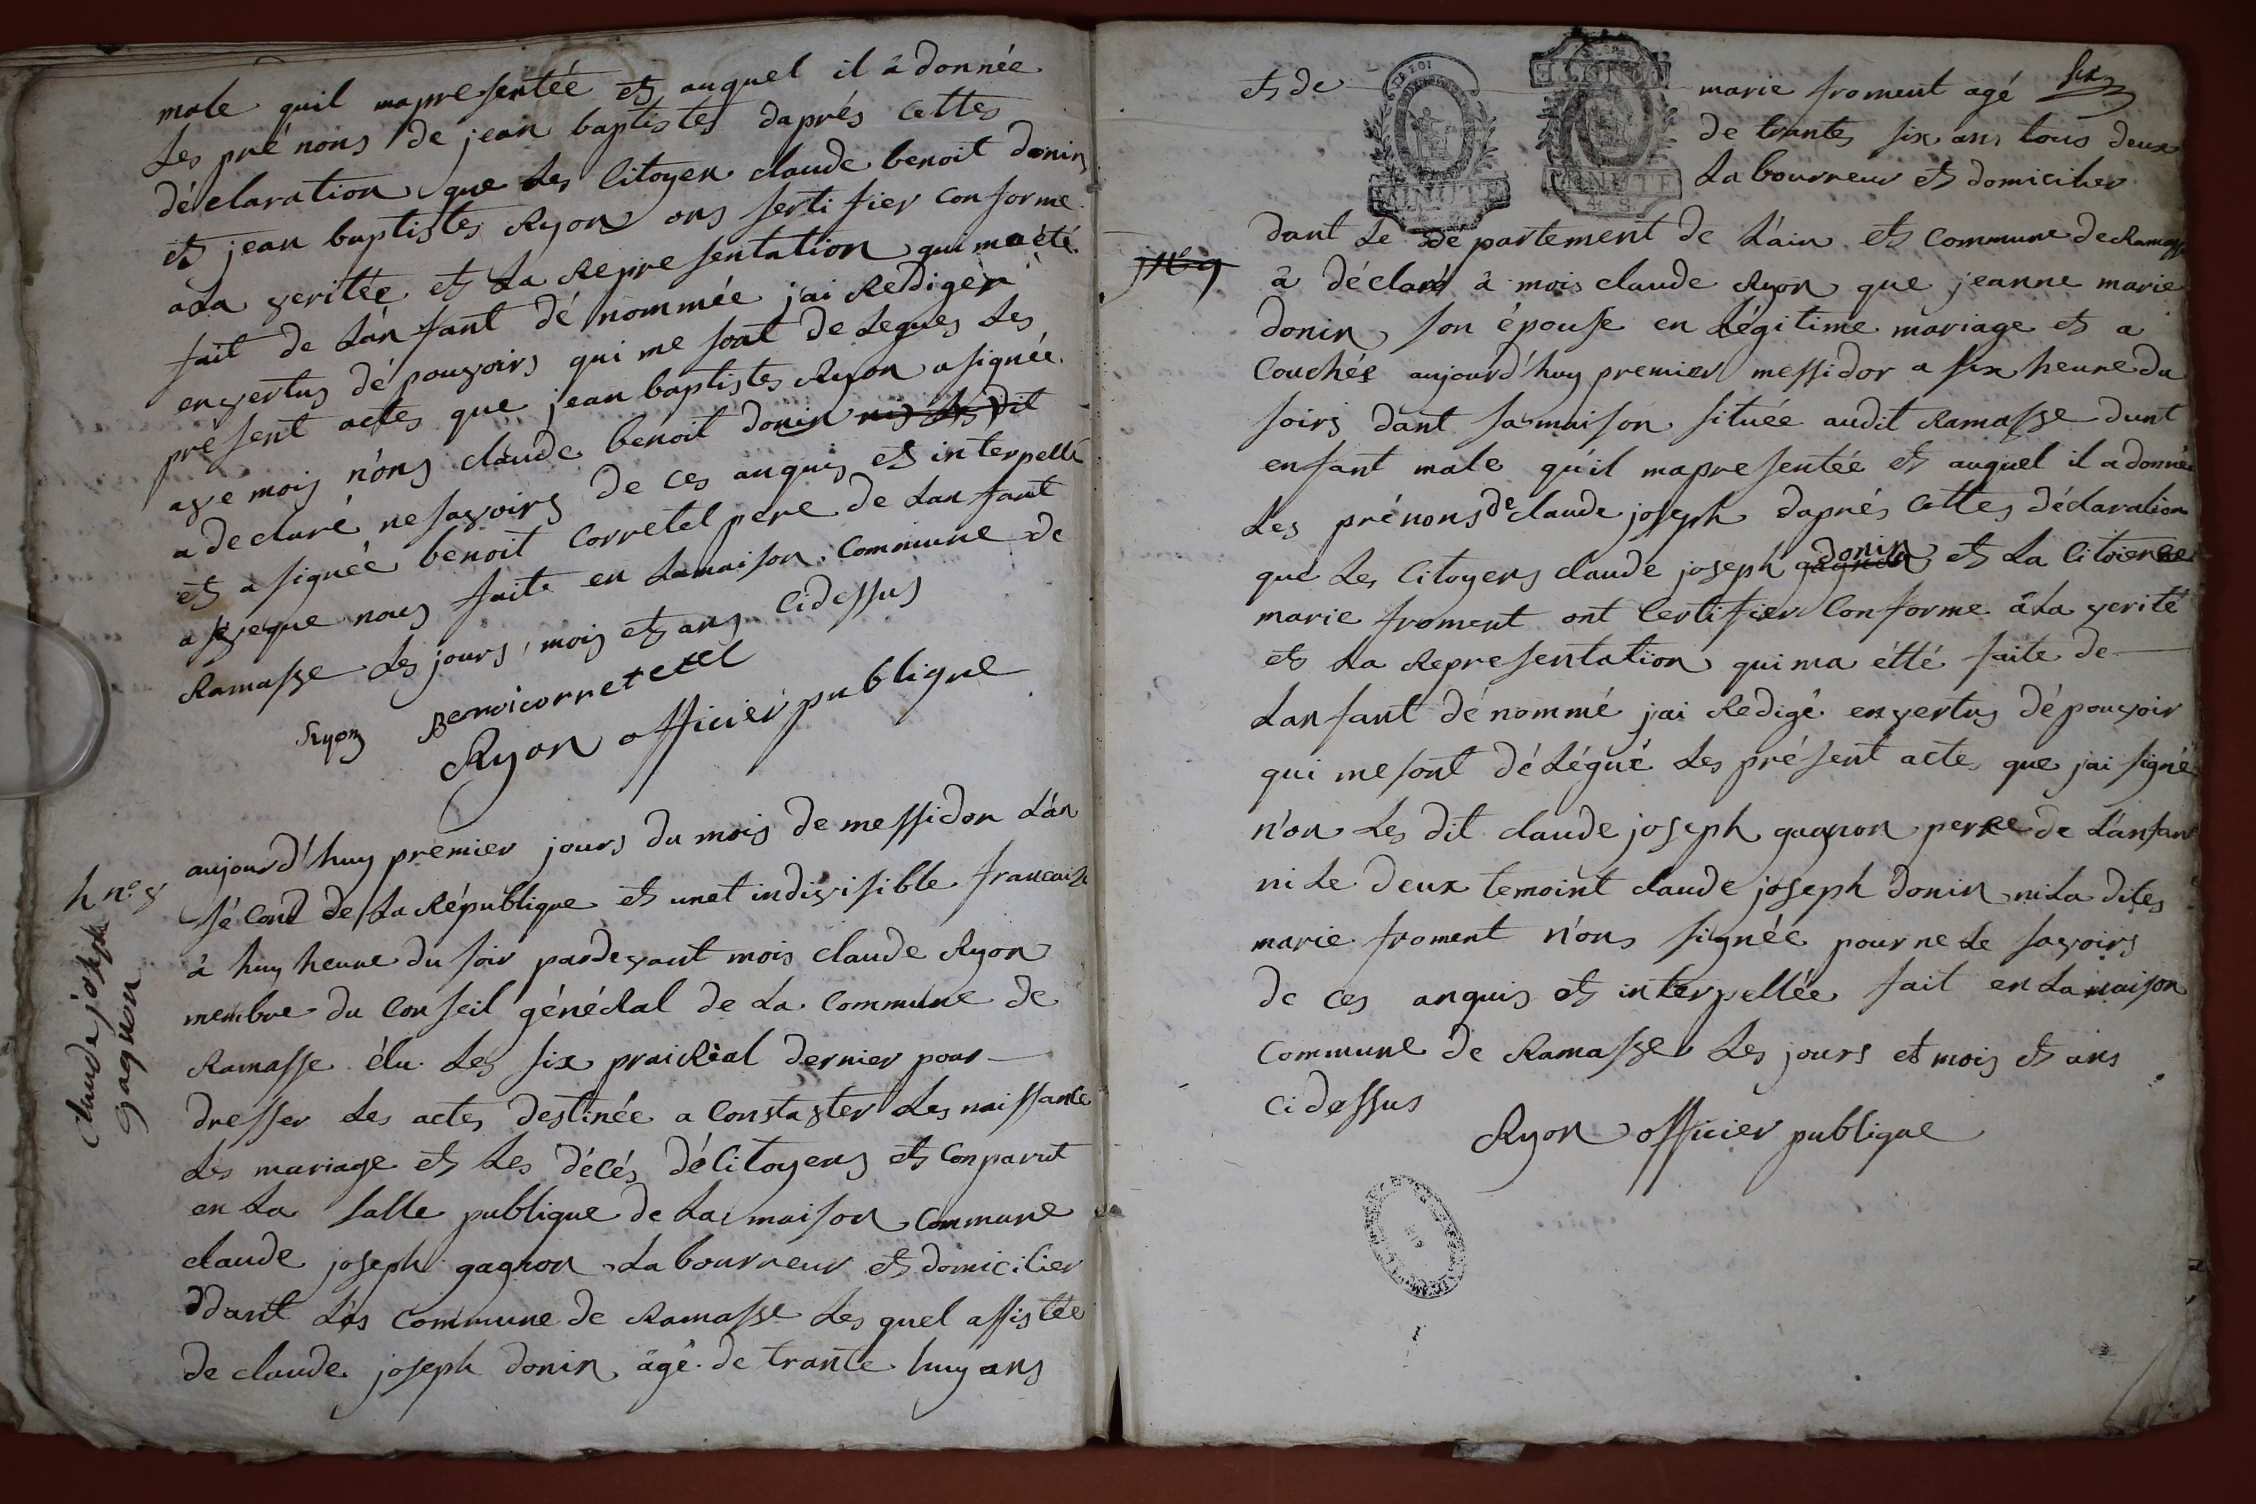 male quil mapresentée et auquel il â donnée
Les pré nons de jean baptistes daprés cettes
déclaration que Les Citoyen claude benoit donin
et jean baptistes Ryon ons serti fier conforme
ala veritée et La Repre sentation qui ma été
fait de L'an fant dé nommée j'ai Rediger
en vertus dé pouvoirs qui me sont de Legues Les
présent actes que jean baptistes Ryon a signée
ave mois n'ons claude benoit donin
a declaré ne savoirs de ces anquis et interpellé
et a signée benoit Corretel pere de Lan fant
aveque nous faite en Lamaison Commune de
Ramasse Les jours, mois et ans Cidessus
Ryon Benoicorretetel
Ryon officier publique
h no 8
claude joseph
gagnon
aujourd'huy premier jours du mois de messidor L'an
sécond de La République et unet indivisible francaise
à huy heure du soir pardevant mois claude Ryon
membre du Conseil généRal de La Commune de
Ramasse élu Les six praiRial dernier pour
dresser Les actes destinée a Constaster Les naissance
Les mariage et Les décés dé Citoyens et Conparut
en La salle publique de La maison Commune
claude joseph gagnon Labourreur et domicilier
dant Las Commune de Ramasse Les quel assistée
de claude joseph donin âgé de trante huy ans
six
et de marie froment agé
MINUTE
MINUTE
de trantes six ans tous deux
Labourreur et domicilier
dant Le dé partement de L'ain et Commune de Ramasse
no 9
â déclaré à mois claude Ryon que jeanne marie
donin son épouse en Légitime mariage et a
Couchée aujourd'huy premier messidor a six heure du
soirs dant sa maison située audit Ramasse dunt
enfant male qu'il mapresentée et auquel il a donnée
Les prénons de claude joseph daprés cettes déclaration
que Les Citoyens claude joseph gagnon donin et La Citoienne
marie froment ont Certifier Conforme â La verité
et La Representation qui ma étté faite de
Lan fant dé nommé j'ai Redigé en vertus dé pouvoir
qui me sont dé Légué Les présent actes que j'ai signé
n'on Les dit claude joseph gagnon perre de L'anfant
ni Le deux temoint claude joseph donin ni La dites
marie froment n'ons signée pour ne Le savoirs
de ces anquis et interpellée fait en La maison
Commune de Ramasse Les jours et mois et ans
Cidessus
Ryon officier publique